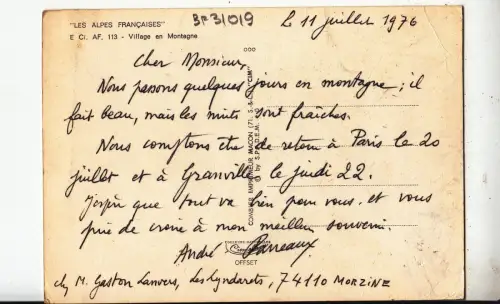 "LES ALPES FRANÇAISES"
E Ci. AF. 113 - Village en Montagne
BF 31019
Le 11 juillet 1976
Cher Monsieur,
Nous passons quelques jours en montagne ; il
fait beau, mais les nuits sont fraîches.
Nous comptons être de retour à Paris le 20
juillet et à Granville le jeudi 22.
J'espère que tout va bien pour vous. et vous
prie de croire à mon meilleur souvenir.
André Parreaux
COMBIER IMPRIMEUR MACON (71. S.-&-L.) "CIM"
by S.P.A.D.E.M.
OFFSET
chez M. Gaston Lanvers, Les Lyndarets, 74110 MORZINE